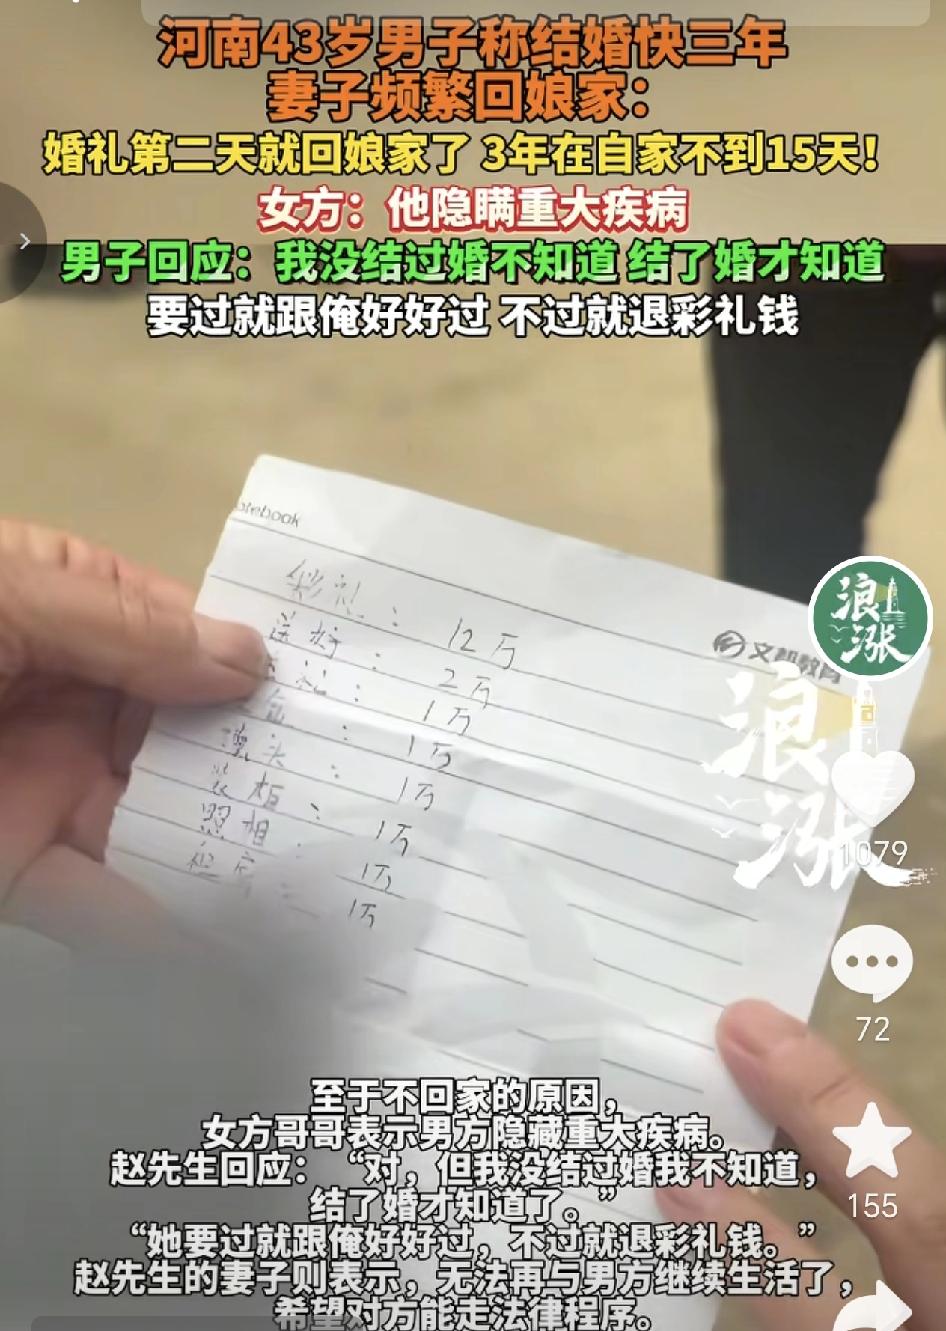 河南43岁男子称结婚快三年
妻子频繁回娘家：
婚礼第二天就回娘家了 3年在自家不到15天！
女方：他隐瞒重大疾病
男子回应：我没结过婚不知道 结了婚才知道
要过就跟俺好好过 不过就退彩礼钱
otebook
彩礼： 12万
送好： 2万
礼： 1万
： 1万
头： 1万
： 1万
照相： 1万
1万
文都教育
浪涨
浪涨
1079
72
155
至于不回家的原因，
女方哥哥表示男方隐藏重大疾病。
赵先生回应：“对，但我没结过婚我不知道，
结了婚才知道了。”
“她要过就跟俺好好过，不过就退彩礼钱。”
赵先生的妻子则表示，无法再与男方继续生活了，
希望对方能走法律程序。